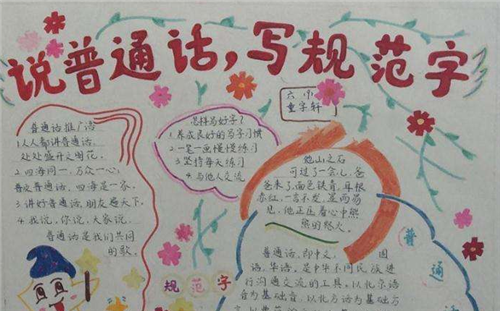 说普通话，写规范字
六(1)
童字轩
普通话推广语
1.人人都讲普通话，
处处盛开文明花。
2.四海同一，万众一心，
普及普通话，四海是一家。
3.讲好普通话，朋友遍天下。
4.我说，你说，大家说，
普通话是我们共同
的歌。
怎样写好字？
1.养成良好的写字习惯
2.一笔一画慢慢练习
3.坚持每天练习
4.与他人交流
他山之石
可过了一会儿，爸
爸来了，面色铁青，耳根
赤红，一言不发，显而易
见，他正压着心中熊
熊的怒火
规范字
普通
普通话，即中文、
国语、华语，是中华不同民族进
行沟通交流的工具，以北京语
音为基础音，以北方话为基